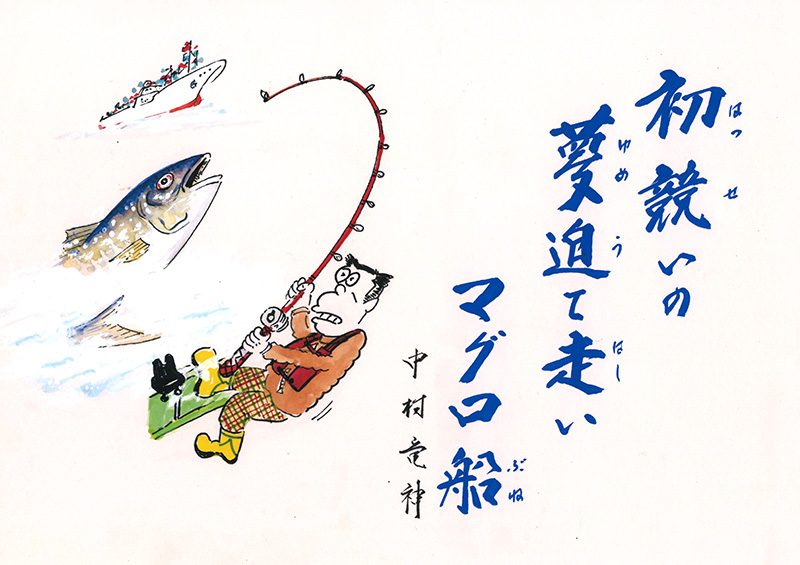 初競いの
はっ せ
夢迫て走い
ゆめ う はし
マグロ船
ぶね
中村竜神